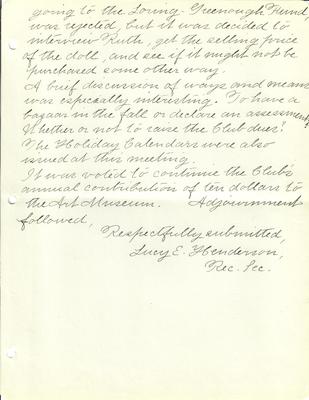 going to the Loring-Greenough Fund,
was rejected, but it was decided to
interview Ruth, get the selling price
of the doll, and see if it might not be
purchased some other way.
A brief discussion of ways and means
was especially interesting. To have a
bazaar in the fall or declare an assessment?
Whether or not to raise the Club dues?
The Holiday Calendars were also
issued at this meeting.
It was voted to continue the Club's
annual contribution of ten dollars to
the Art Museum. Adjournment
followed,
Respectfully submitted,
Lucy E. Henderson,
Rec. Sec.